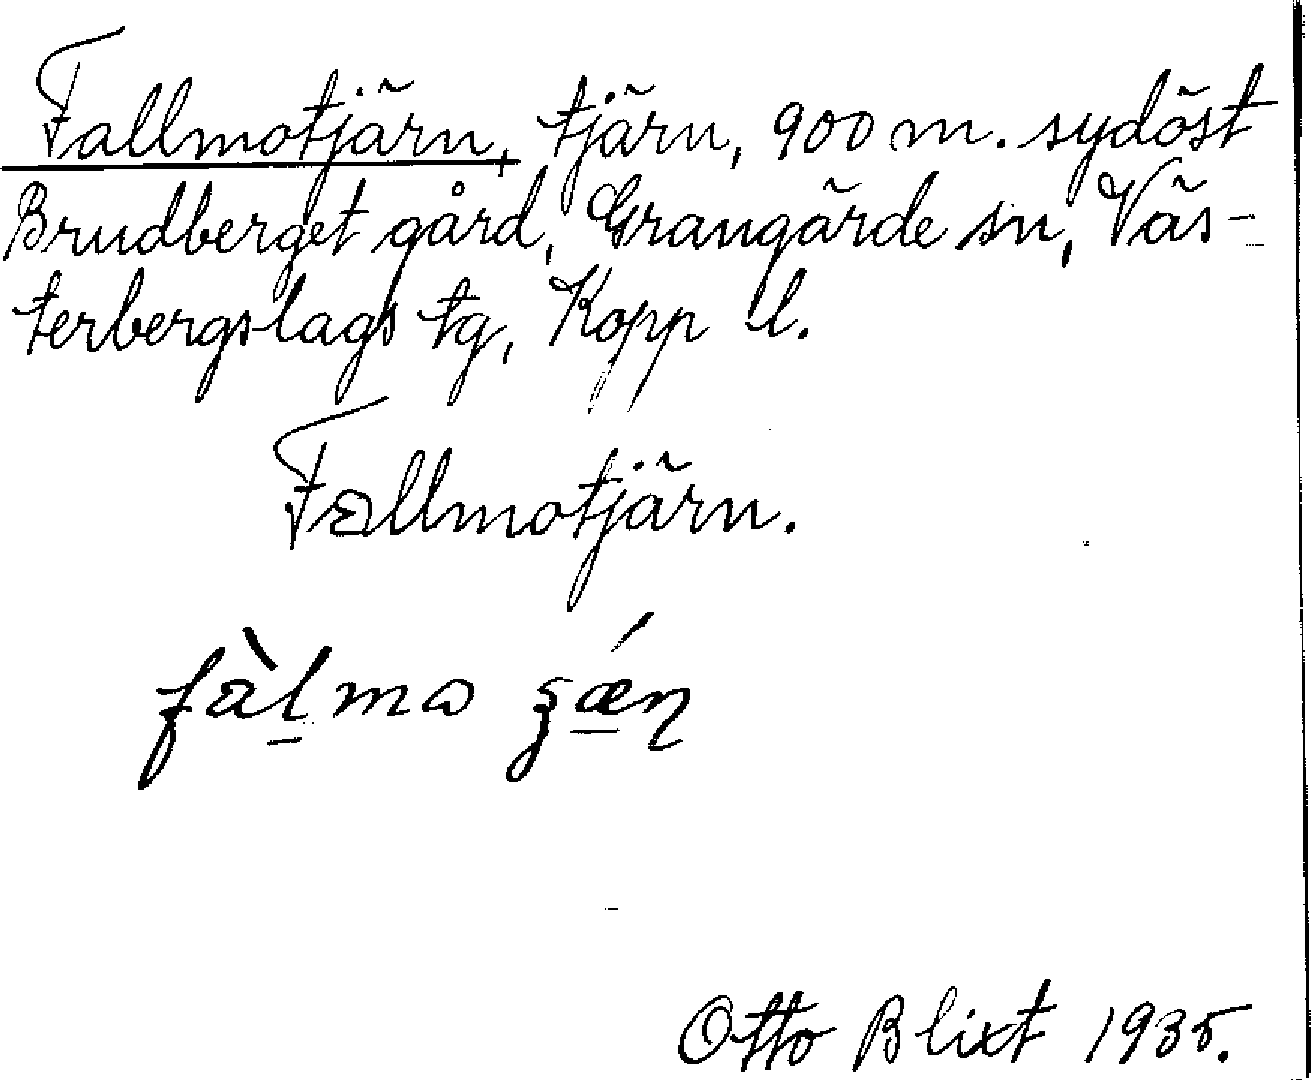 Fallmotjärn, tjärn, 900 m. sydöst
Brudberget gård, Grangärde sn, Väs-
terbergslags tg, Kopp l.
Fallmotjärn.
fàl̠mɷ ʂǽ̠ɳ
Otto Blixt 1935.